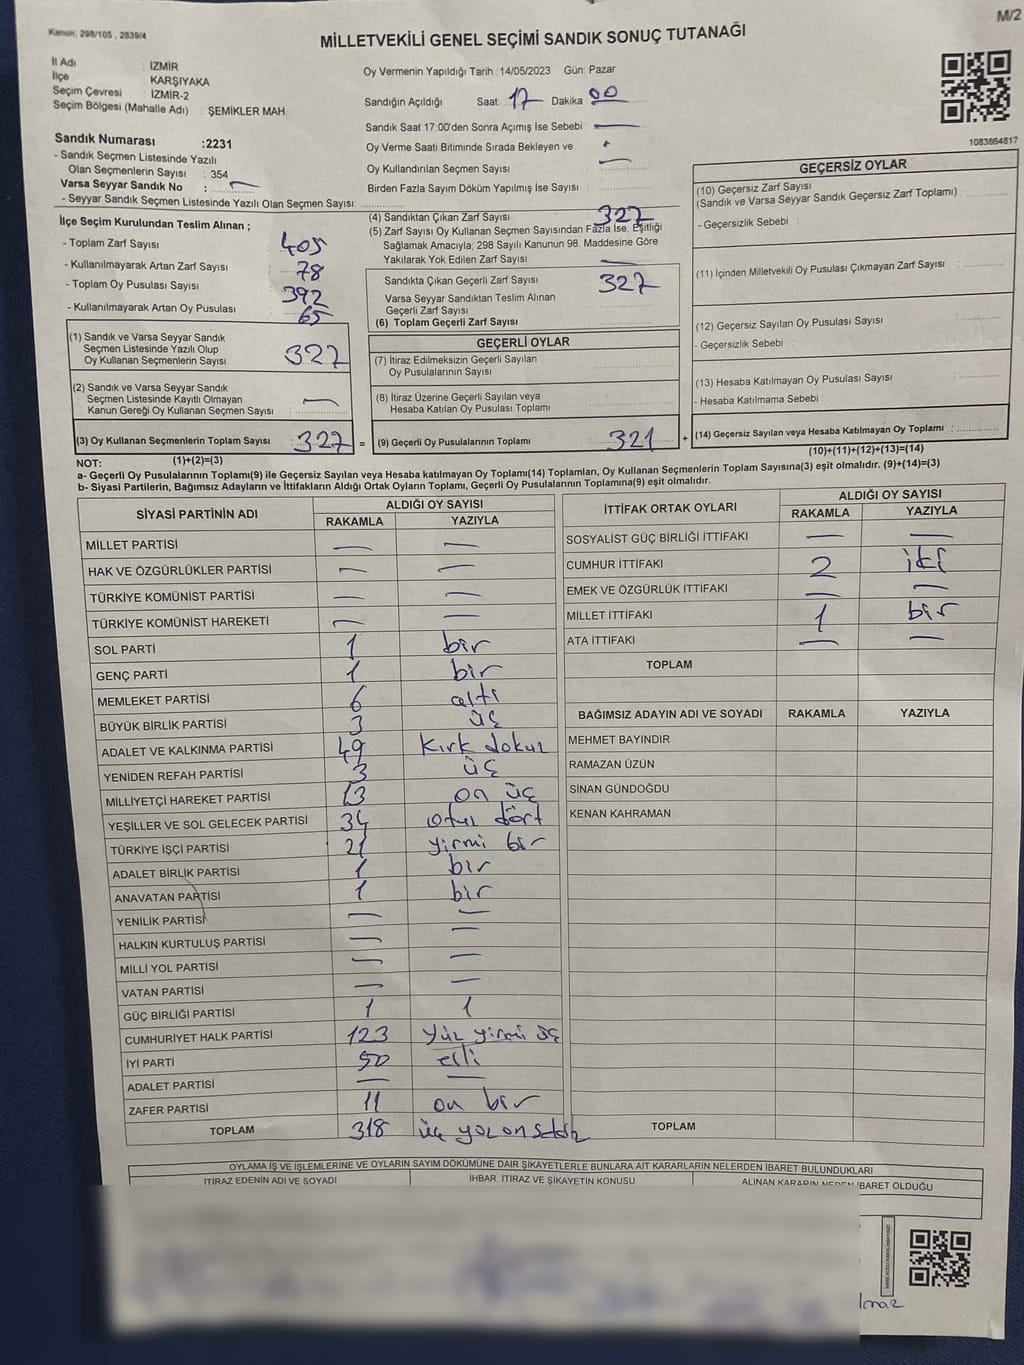 Kanun, 298/105 , 2839/4
M/2
MİLLETVEKİLİ GENEL SEÇİMİ SANDIK SONUÇ TUTANAĞI
İl Adı : İZMİR
İlçe : KARŞIYAKA
Seçim Çevresi : İZMİR-2
Seçim Bölgesi (Mahalle Adı) : ŞEMİKLER MAH.
Oy Vermenin Yapıldığı Tarih :14/05/2023 Gün: Pazar
Sandığın Açıldığı Saat: 17 Dakika 00
Sandık Saat 17:00'den Sonra Açımış İse Sebebi : —
Oy Verme Saati Bitiminde Sırada Bekleyen ve
Oy Kullandırılan Seçmen Sayısı : —
Birden Fazla Sayım Döküm Yapılmış İse Sayısı :
1083864817
Sandık Numarası :2231
- Sandık Seçmen Listesinde Yazılı
Olan Seçmenlerin Sayısı : 354
Varsa Seyyar Sandık No : —
- Seyyar Sandık Seçmen Listesinde Yazılı Olan Seçmen Sayısı:
İlçe Seçim Kurulundan Teslim Alınan ;
- Toplam Zarf Sayısı : 405
- Kullanılmayarak Artan Zarf Sayısı : 78
- Toplam Oy Pusulası Sayısı : 392
- Kullanılmayarak Artan Oy Pusulası : 65
(1) Sandık ve Varsa Seyyar Sandık
Seçmen Listesinde Yazılı Olup
Oy Kullanan Seçmenlerin Sayısı : 327
(2) Sandık ve Varsa Seyyar Sandık
Seçmen Listesinde Kayıtlı Olmayan
Kanun Gereği Oy Kullanan Seçmen Sayısı : —
(3) Oy Kullanan Seçmenlerin Toplam Sayısı : 327 =
(1)+(2)=(3)
(4) Sandıktan Çıkan Zarf Sayısı 327
(5) Zarf Sayısı Oy Kullanan Seçmen Sayısından Fazla İse, Eşitliği
Sağlamak Amacıyla; 298 Sayılı Kanunun 98. Maddesine Göre
Yakılarak Yok Edilen Zarf Sayısı —
Sandıkta Çıkan Geçerli Zarf Sayısı : 327
Varsa Seyyar Sandıktan Teslim Alınan
Geçerli Zarf Sayısı
(6) Toplam Geçerli Zarf Sayısı :
GEÇERLİ OYLAR
(7) İtiraz Edilmeksizin Geçerli Sayılan
Oy Pusulalarının Sayısı :
(8) İtiraz Üzerine Geçerli Sayılan veya
Hesaba Katılan Oy Pusulası Toplamı :
(9) Geçerli Oy Pusulalarının Toplamı : 321 +
GEÇERSİZ OYLAR
(10) Geçersiz Zarf Sayısı
(Sandık ve Varsa Seyyar Sandık Geçersiz Zarf Toplamı) :
- Geçersizlik Sebebi :
(11) İçinden Milletvekili Oy Pusulası Çıkmayan Zarf Sayısı :
(12) Geçersiz Sayılan Oy Pusulası Sayısı :
- Geçersizlik Sebebi :
(13) Hesaba Katılmayan Oy Pusulası Sayısı :
- Hesaba Katılmama Sebebi :
(14) Geçersiz Sayılan veya Hesaba Katılmayan Oy Toplamı :
(10)+(11)+(12)+(13)=(14)
NOT:
a- Geçerli Oy Pusulalarının Toplamı(9) ile Geçersiz Sayılan veya Hesaba katılmayan Oy Toplamı(14) Toplamları, Oy Kullanan Seçmenlerin Toplam Sayısına(3) eşit olmalıdır. (9)+(14)=(3)
b- Siyasi Partilerin, Bağımsız Adayların ve İttifakların Aldığı Ortak Oyların Toplamı, Geçerli Oy Pusulalarının Toplamına(9) eşit olmalıdır.
SİYASİ PARTİNİN ADI ALDIĞI OY SAYISI
RAKAMLA YAZIYLA
MİLLET PARTİSİ — —
HAK VE ÖZGÜRLÜKLER PARTİSİ — —
TÜRKİYE KOMÜNİST PARTİSİ — —
TÜRKİYE KOMÜNİST HAREKETİ — —
SOL PARTİ 1 bir
GENÇ PARTİ 1 bir
MEMLEKET PARTİSİ 6 altı
BÜYÜK BİRLİK PARTİSİ 3 üç
ADALET VE KALKINMA PARTİSİ 49 kırk dokuz
YENİDEN REFAH PARTİSİ 3 üç
MİLLİYETÇİ HAREKET PARTİSİ 13 on üç
YEŞİLLER VE SOL GELECEK PARTİSİ 34 otuz dört
TÜRKİYE İŞÇİ PARTİSİ 21 yirmi bir
ADALET BİRLİK PARTİSİ 1 bir
ANAVATAN PARTİSİ 1 bir
YENİLİK PARTİSİ — —
HALKIN KURTULUŞ PARTİSİ — —
MİLLİ YOL PARTİSİ — —
VATAN PARTİSİ — —
GÜÇ BİRLİĞİ PARTİSİ 1 1
CUMHURİYET HALK PARTİSİ 123 yüz yirmi üç
İYİ PARTİ 50 elli
ADALET PARTİSİ — —
ZAFER PARTİSİ 11 on bir
TOPLAM 318 üç yüz on sekiz
İTTİFAK ORTAK OYLARI ALDIĞI OY SAYISI
RAKAMLA YAZIYLA
SOSYALİST GÜÇ BİRLİĞİ İTTİFAKI — —
CUMHUR İTTİFAKI 2 iki
EMEK VE ÖZGÜRLÜK İTTİFAKI — —
MİLLET İTTİFAKI 1 bir
ATA İTTİFAKI — —
TOPLAM
BAĞIMSIZ ADAYIN ADI VE SOYADI RAKAMLA YAZIYLA
MEHMET BAYINDIR
RAMAZAN ÜZÜN
SİNAN GÜNDOĞDU
KENAN KAHRAMAN
TOPLAM
OYLAMA İŞ VE İŞLEMLERİNE VE OYLARIN SAYIM DÖKÜMÜNE DAİR ŞİKAYETLERLE BUNLARA AİT KARARLARIN NELERDEN İBARET BULUNDUKLARI
İTİRAZ EDENİN ADI VE SOYADI İHBAR, İTİRAZ VE ŞİKAYETİN KONUSU ALINAN KARARIN NEDEN İBARET OLDUĞU